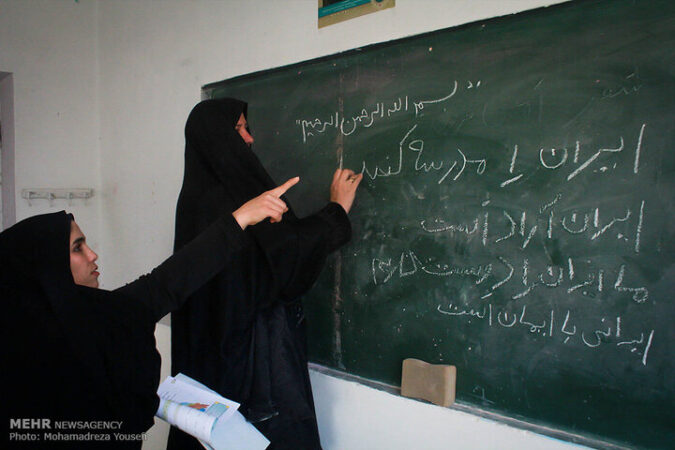 "بسم الله الرحمن الرحیم"
ایران را مدرسه کنید
ایران آزاد است
ما ایران را دوست داریم
ایرانی با ایمان است
MEHR NEWSAGENCY
Photo : Mohamadreza Yousefi